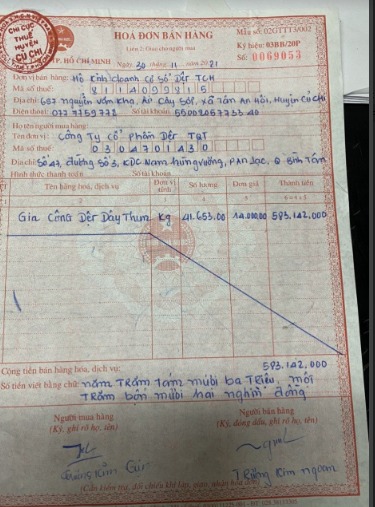 CHI CỤC
THUẾ
HUYỆN
CỦ CHI
HÓA ĐƠN BÁN HÀNG
Liên 2: Giao cho người mua
Mẫu số: 02GTTT3/002
Ký hiệu: 03BB/20P
Số: 0069053
TP. HỒ CHÍ MINH Ngày 30 tháng 11 năm 2021
Đơn vị bán hàng: Hộ Kinh doanh Cơ Sở Dệt TCH
Mã số thuế: 8114099815
Địa chỉ: 687 Nguyễn Văn Khạ, Ấp Cây Sộp, Xã Tân An Hội, Huyện Củ Chi
Điện thoại: Số tài khoản:
Họ tên người mua hàng:
Tên đơn vị: Công Ty Cổ Phần Dệt TQT
Mã số thuế: 0304701430
Địa chỉ: Số 47, đường Số 3, KDC Nam Hùng Vương, P An Lạc, Q Bình Tân
Hình thức thanh toán: Số tài khoản:
Tên hàng hóa, dịch vụ Đơn vị tính Số lượng Đơn giá Thành tiền
Gia Công Dệt Dây Thun Kg 41.653.00 14.000,00 583.142,000
Cộng tiền bán hàng hóa, dịch vụ: 583.142,000
Số tiền viết bằng chữ: năm Trăm tám mươi ba Triệu, một
Trăm bốn mươi hai nghìn đồng
Người mua hàng Người bán hàng
(Ký, ghi rõ họ, tên) (Ký, đóng dấu, ghi rõ họ, tên)
Trương Kim Ngoan
(Cần kiểm tra, đối chiếu khi lập, giao, nhận hóa đơn)